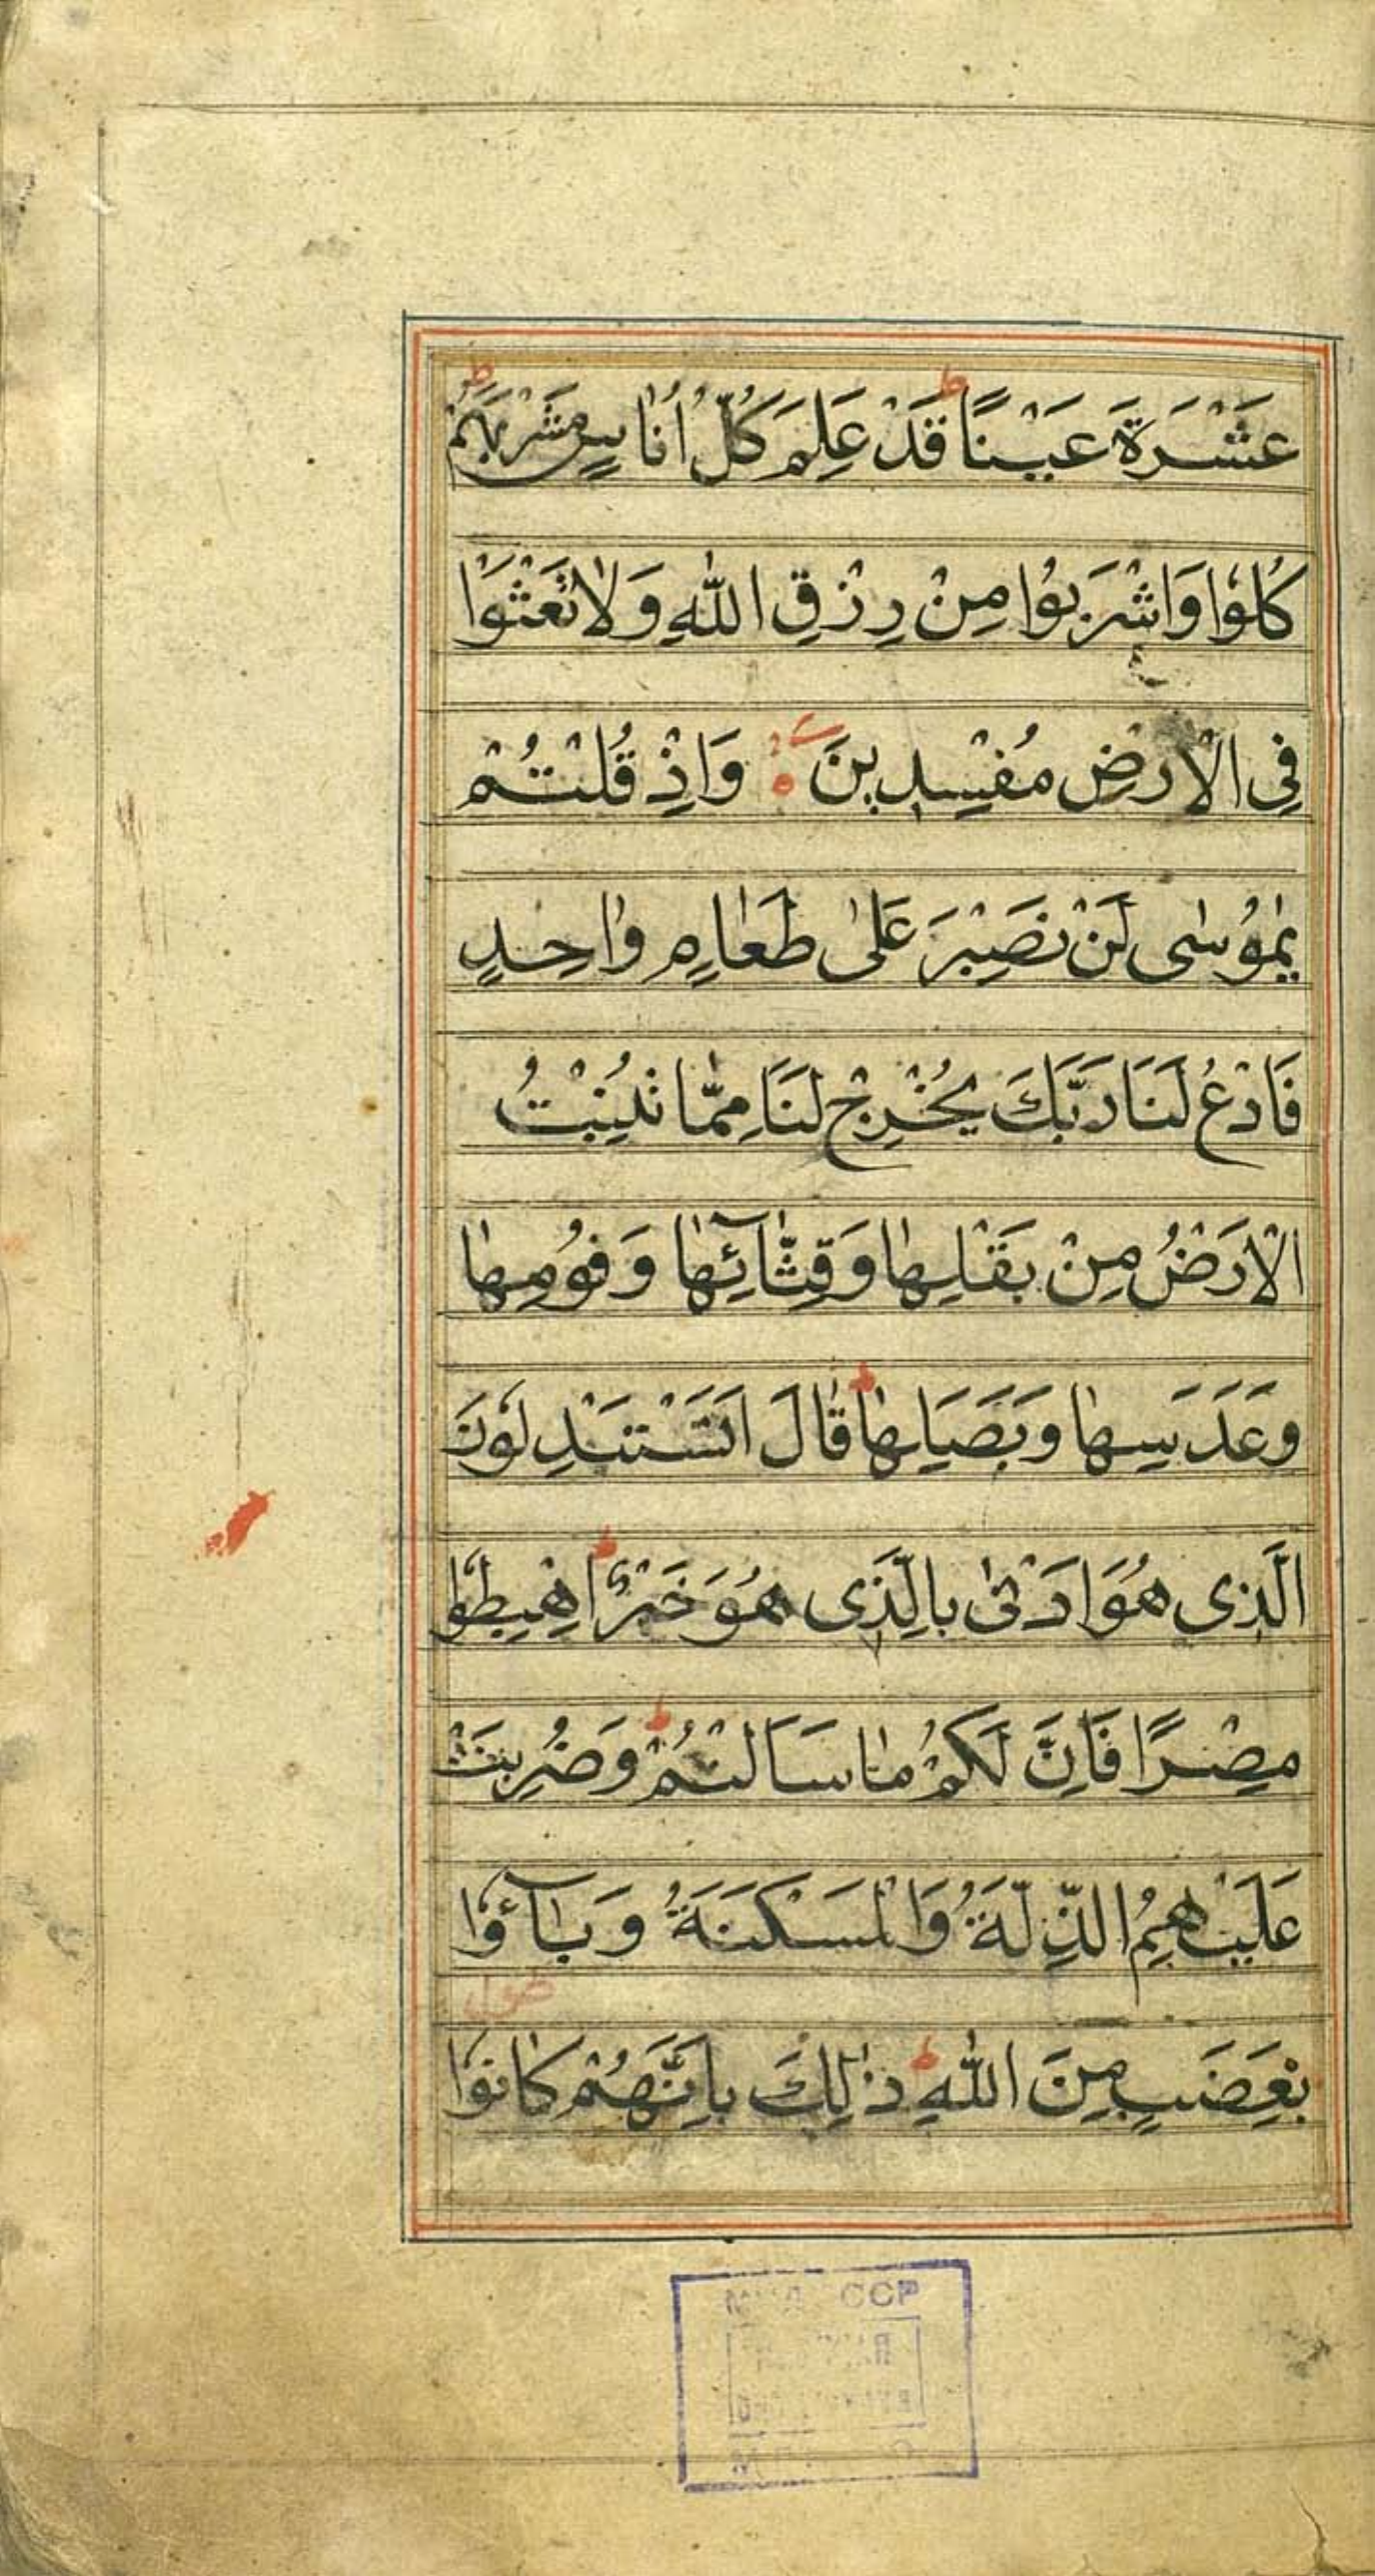 عَشْرَةَ عَيْنًا ط قَدْ عَلِمَ كُلُّ أُنَاسٍ مَشْرَبَهُمْ ط
كُلُوا وَاشْرَبُوا مِنْ رِزْقِ اللّٰهِ وَلٰا تَعْثَوْا
فِي الْاَرْضِ مُفْسِدِينَ وَاِذْ قُلْتُمْ
يٰمُوسٰى لَنْ نَصْبِرَ عَلٰى طَعٰامٍ وٰاحِدٍ
فَادْعُ لَنَا رَبَّكَ يُخْرِجْ لَنَا مِمّٰا تُنْبِتُ
الْاَرْضُ مِنْ بَقْلِهٰا وَقِثّٰآئِهٰا وَفُومِهٰا
وَعَدَسِهٰا وَبَصَلِهٰا ط قٰالَ اَتَسْتَبْدِلُونَ
الَّذِى هُوَ اَدْنٰى بِالَّذِى هُوَ خَيْرٌ ط اِهْبِطُوا
مِصْرًا فَاِنَّ لَكُمْ مٰا سَاَلْتُمْ ط وَضُرِبَتْ
عَلَيْهِمُ الذِّلَّةُ وَالْمَسْكَنَةُ وَبٰآؤُا
بِغَضَبٍ مِنَ اللّٰهِ ط ذٰلِكَ بِاَنَّهُمْ كٰانُوا
ССР